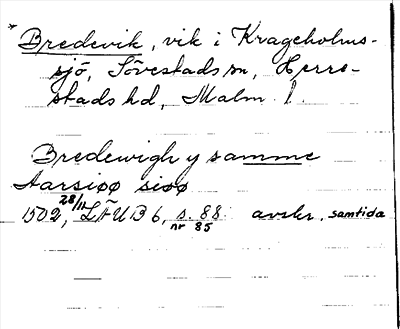 * Bredevik, vik i Krageholms-
sjö, Sövestads sn, Herre-
stads hd, Malm. l.
Bredewigh y samme
Aarsiøø siøø
1502, 28/11 LÄUB 6, s. 88 avskr. samtida
nr 85